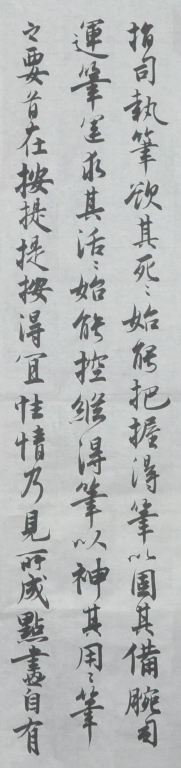 指司執筆欲其死〻始能把握得筆以固其備腕司
運筆選求其活〻始能控縱得筆以神其用〻筆
之要首在按提提按得宜性情乃見所成點畫自有